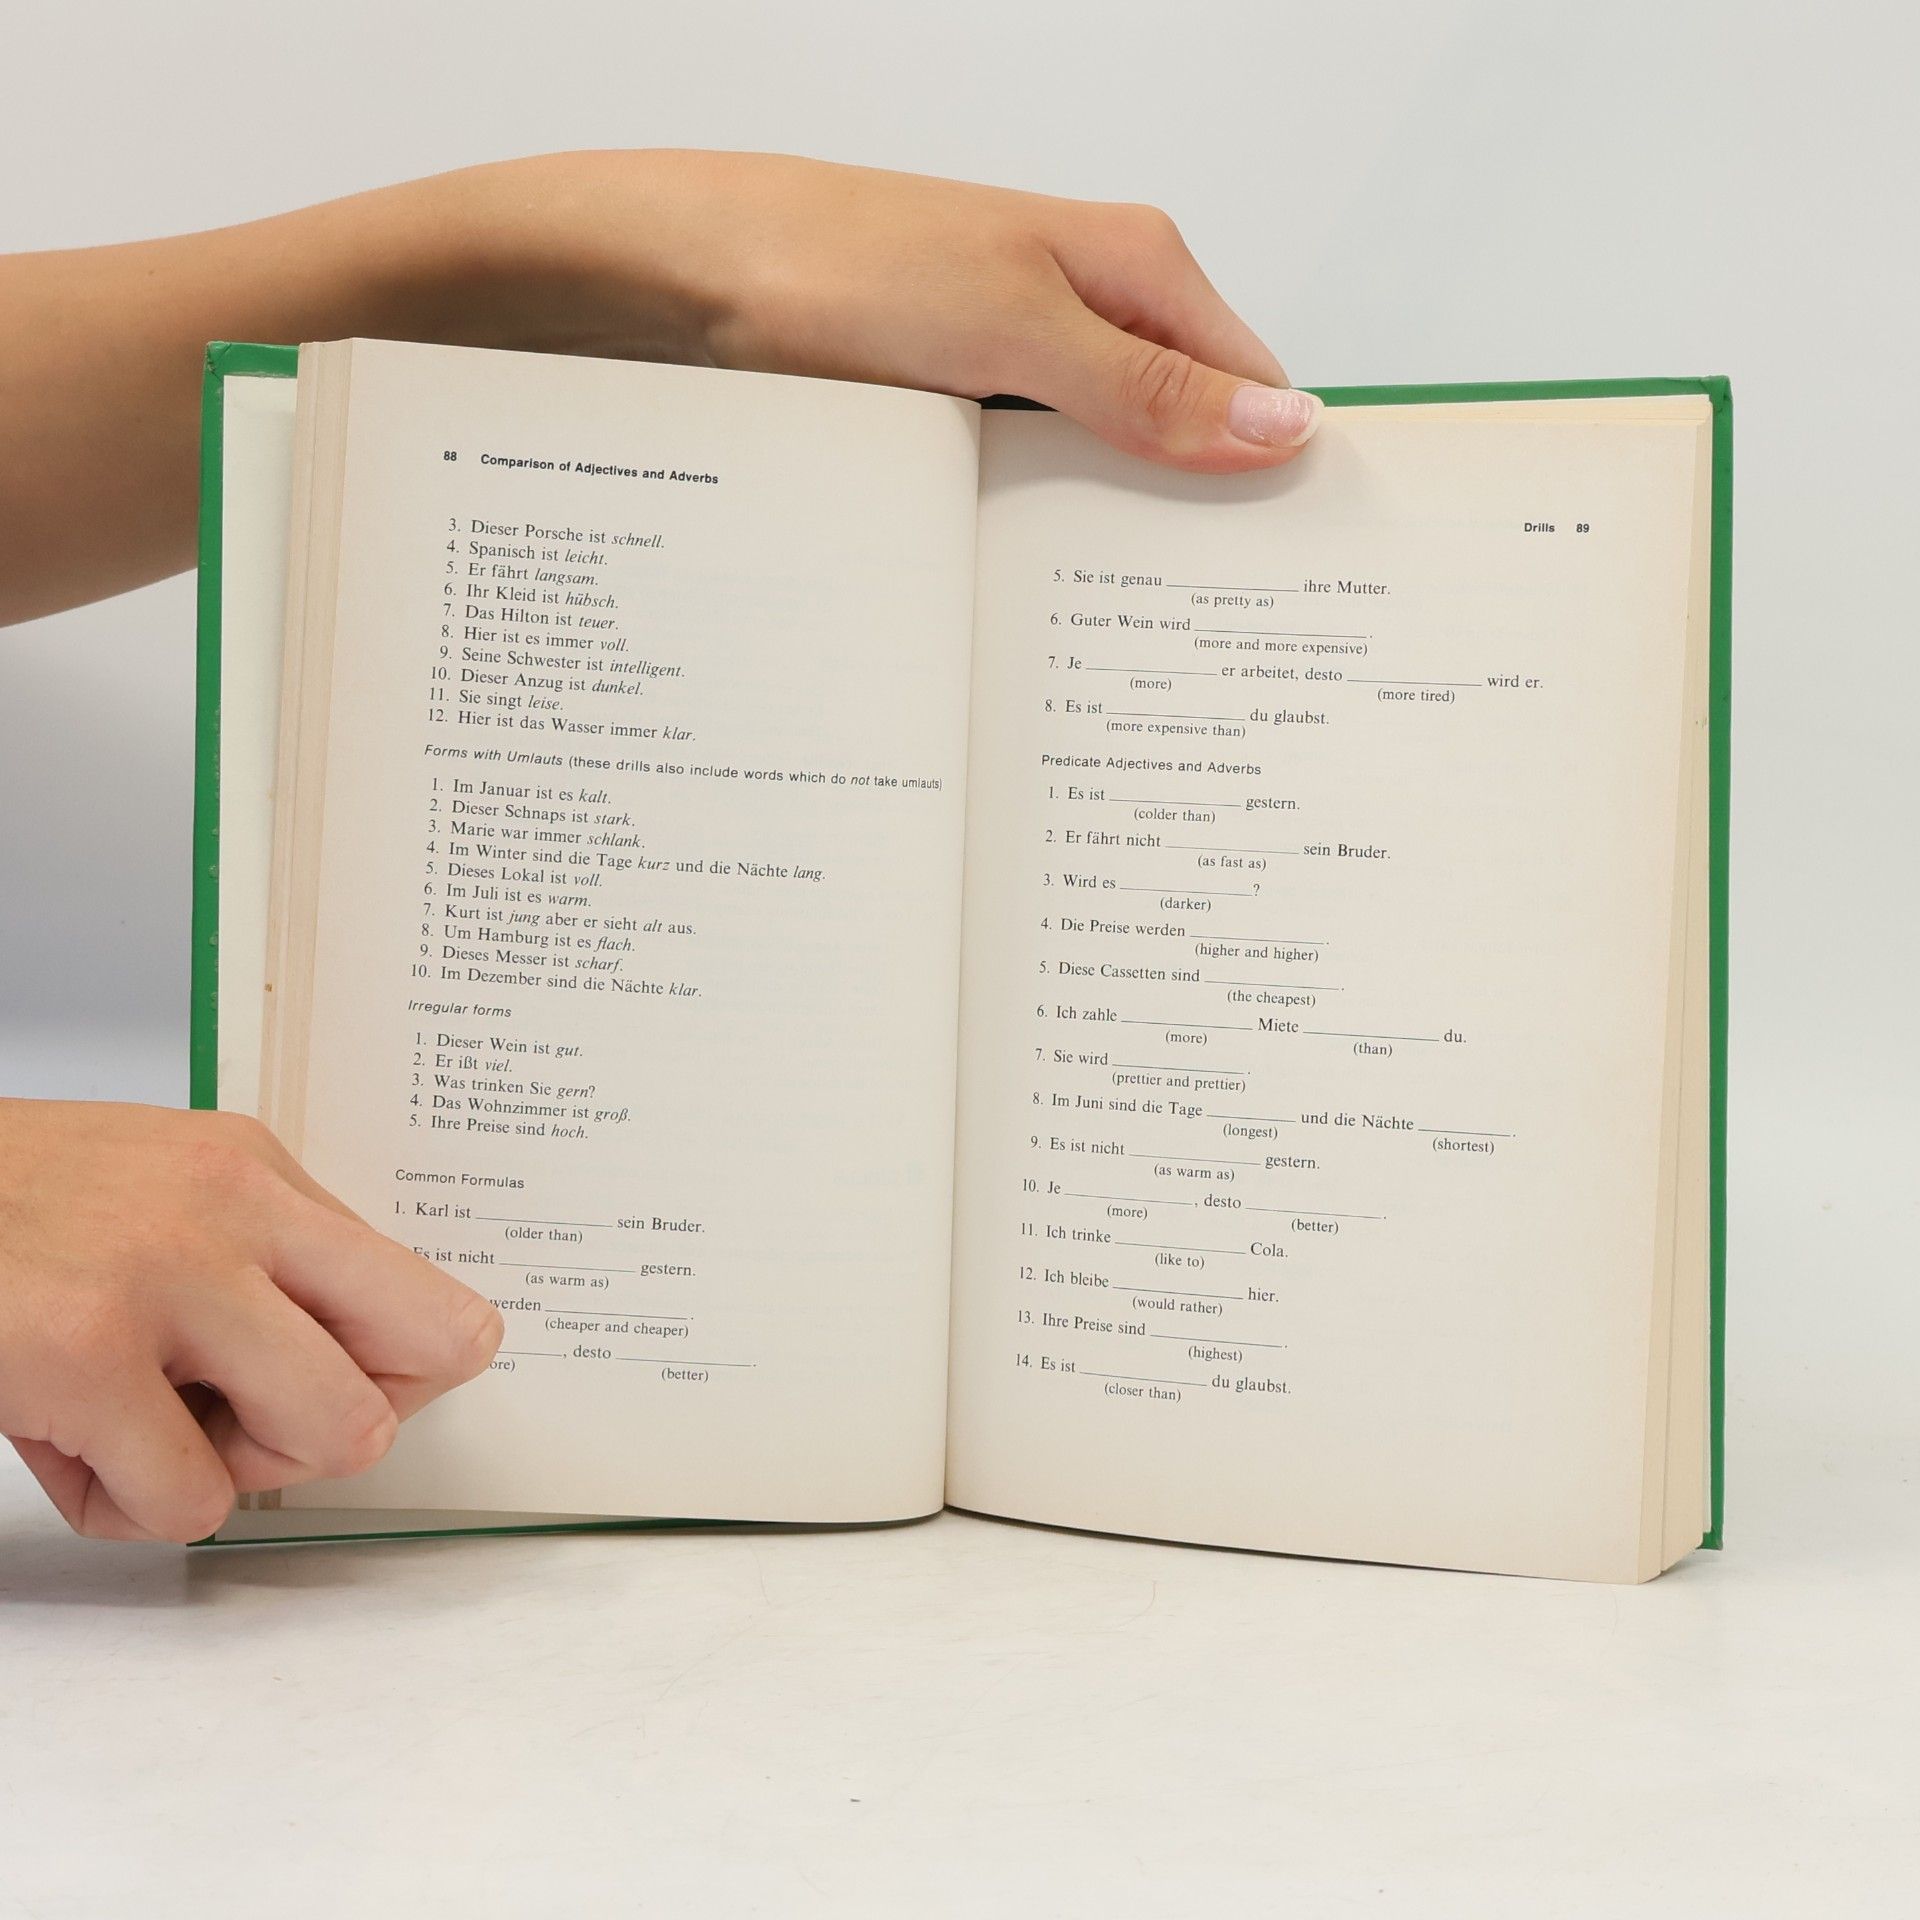 88 Comparison of Adjectives and Adverbs
3. Dieser Porsche ist schnell.
4. Spanisch ist leicht.
5. Er fährt langsam.
6. Ihr Kleid ist hübsch.
7. Das Hilton ist teuer.
8. Hier ist es immer voll.
9. Seine Schwester ist intelligent.
10. Dieser Anzug ist dunkel.
11. Sie singt leise.
12. Hier ist das Wasser immer klar.
Forms with Umlauts (these drills also include words which do not take umlauts)
1. Im Januar ist es kalt.
2. Dieser Schnaps ist stark.
3. Marie war immer schlank.
4. Im Winter sind die Tage kurz und die Nächte lang.
5. Dieses Lokal ist voll.
6. Im Juli ist es warm.
7. Kurt ist jung aber er sieht alt aus.
8. Um Hamburg ist es flach.
9. Dieses Messer ist scharf.
10. Im Dezember sind die Nächte klar.
Irregular forms
1. Dieser Wein ist gut.
2. Er ißt viel.
3. Was trinken Sie gern?
4. Das Wohnzimmer ist groß.
5. Ihre Preise sind hoch.
Common Formulas
1. Karl ist ____ sein Bruder.
(older than)
Es ist nicht ____ gestern.
(as warm as)
werden ____.
(cheaper and cheaper)
____, desto ____.
ore) (better)
Drills 89
5. Sie ist genau ____ ihre Mutter.
(as pretty as)
6. Guter Wein wird ____.
(more and more expensive)
7. Je ____ er arbeitet, desto ____ wird er.
(more) (more tired)
8. Es ist ____ du glaubst.
(more expensive than)
Predicate Adjectives and Adverbs
1. Es ist ____ gestern.
(colder than)
2. Er fährt nicht ____ sein Bruder.
(as fast as)
3. Wird es ____?
(darker)
4. Die Preise werden ____.
(higher and higher)
5. Diese Cassetten sind ____.
(the cheapest)
6. Ich zahle ____ Miete ____ du.
(more) (than)
7. Sie wird ____.
(prettier and prettier)
8. Im Juni sind die Tage ____ und die Nächte ____.
(longest) (shortest)
9. Es ist nicht ____ gestern.
(as warm as)
10. Je ____, desto ____.
(more) (better)
11. Ich trinke ____ Cola.
(like to)
12. Ich bleibe ____ hier.
(would rather)
13. Ihre Preise sind ____.
(highest)
14. Es ist ____ du glaubst.
(closer than)